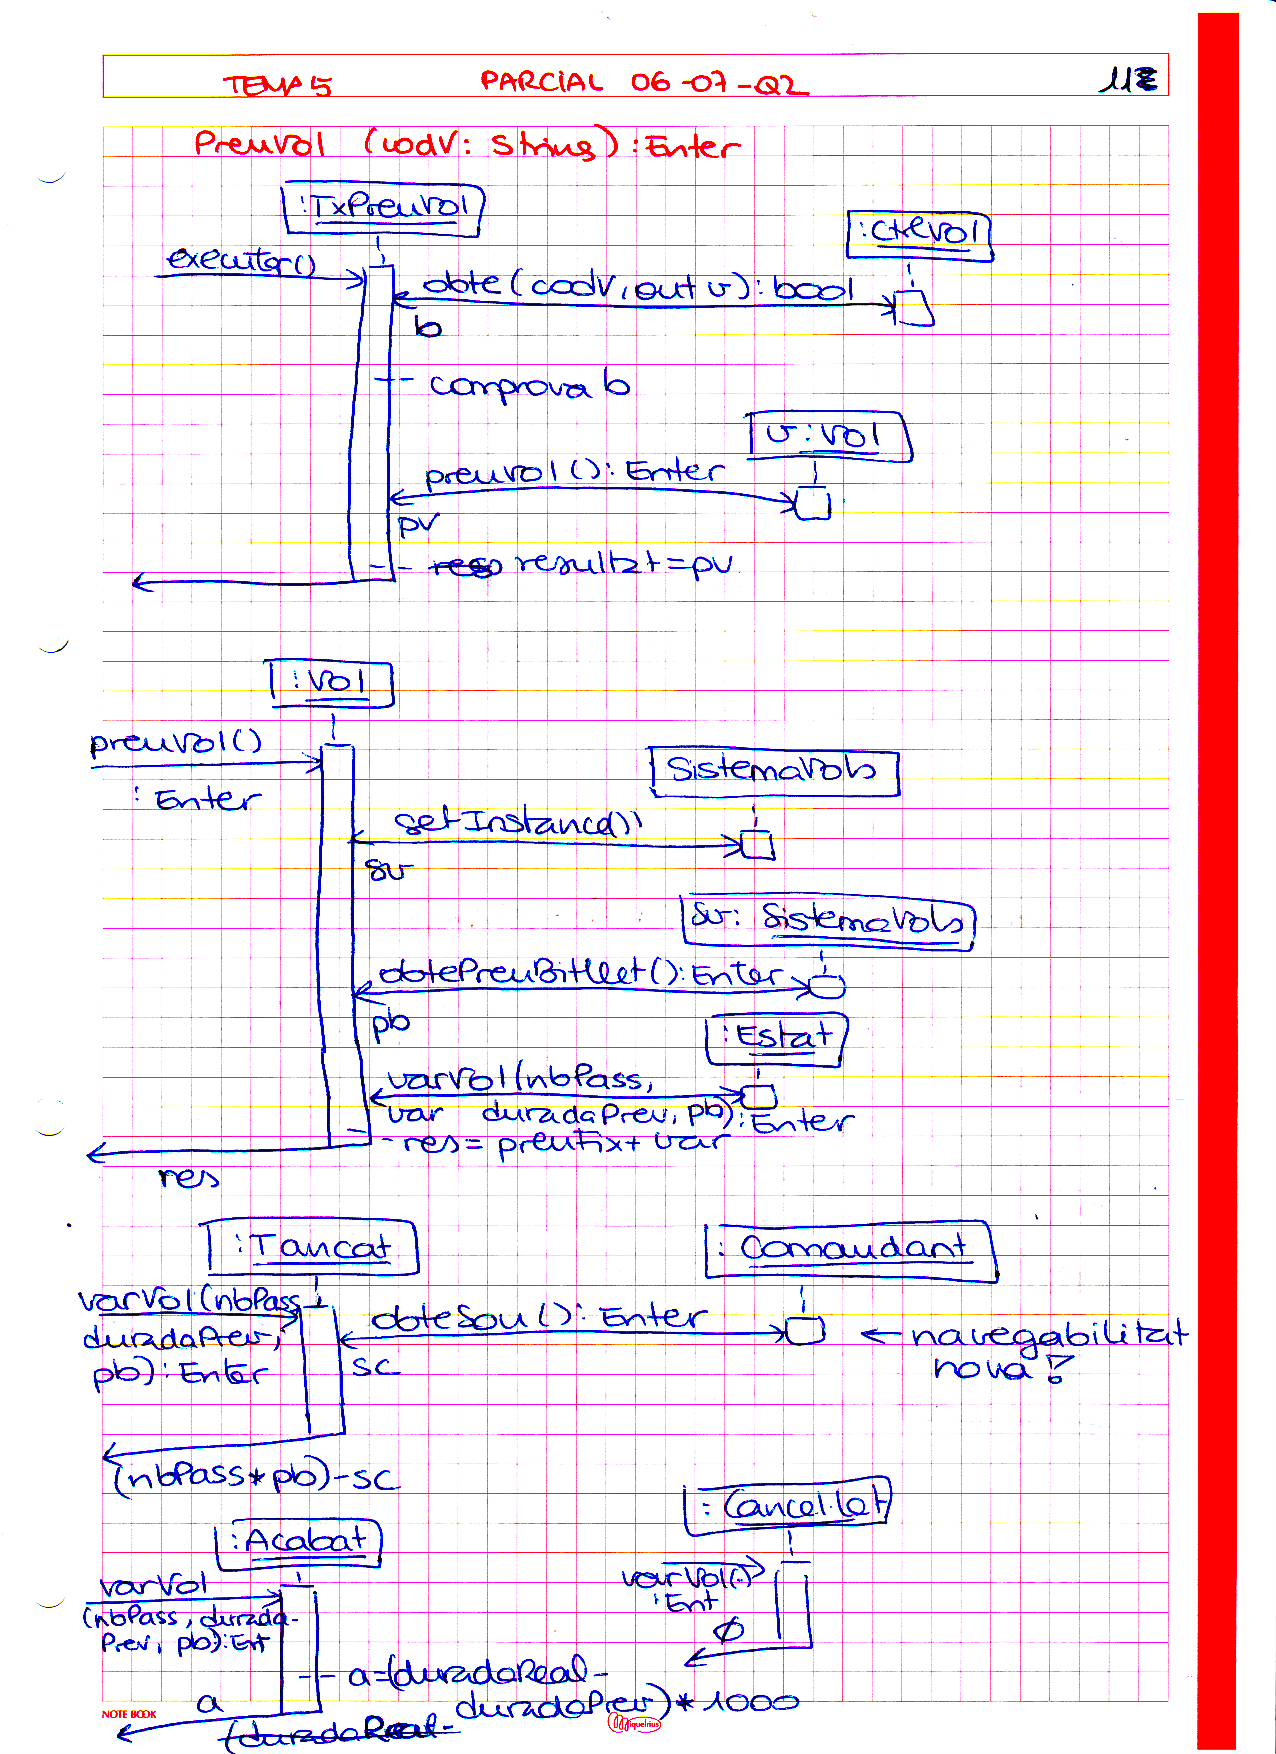 TEMA 5 PARCIAL 06-07-Q2
PreuVol (codV: String): Enter
:TxPreuVol
:CteVol
executar()
obte(codV, out v): bool
b
comprova b
v: Vol
preuVol(): Enter
pv
resultat = pv
:Vol
preuVol()
: Enter
SistemaVols
getInstance()
sv
sv: SistemaVols
obtePreuBitllet(): Enter
pb
:Estat
varVol(nbPass,
var duradaPrev, pb): Enter
res = preufix + var
res
:Tancat
: Comandant
varVol(nbPass,
duradaPrev,
pb): Enter
obteSou(): Enter
sc
← navegabilitat
nova?
(nbPass * pb) - sc
: Cancel·lat
:Acabat
varVol()
: Ent
Ø
varVol
(nbPass, durada-
Prev, pb): Ent
a = (duradaReal -
duradaPrev) * 1000
a
(duradaReal -
NOTE BOOK
Miquelrius